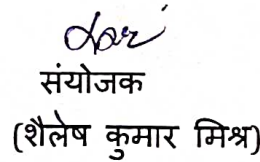 संयोजक
(शैलेष कुमार मिश्र)